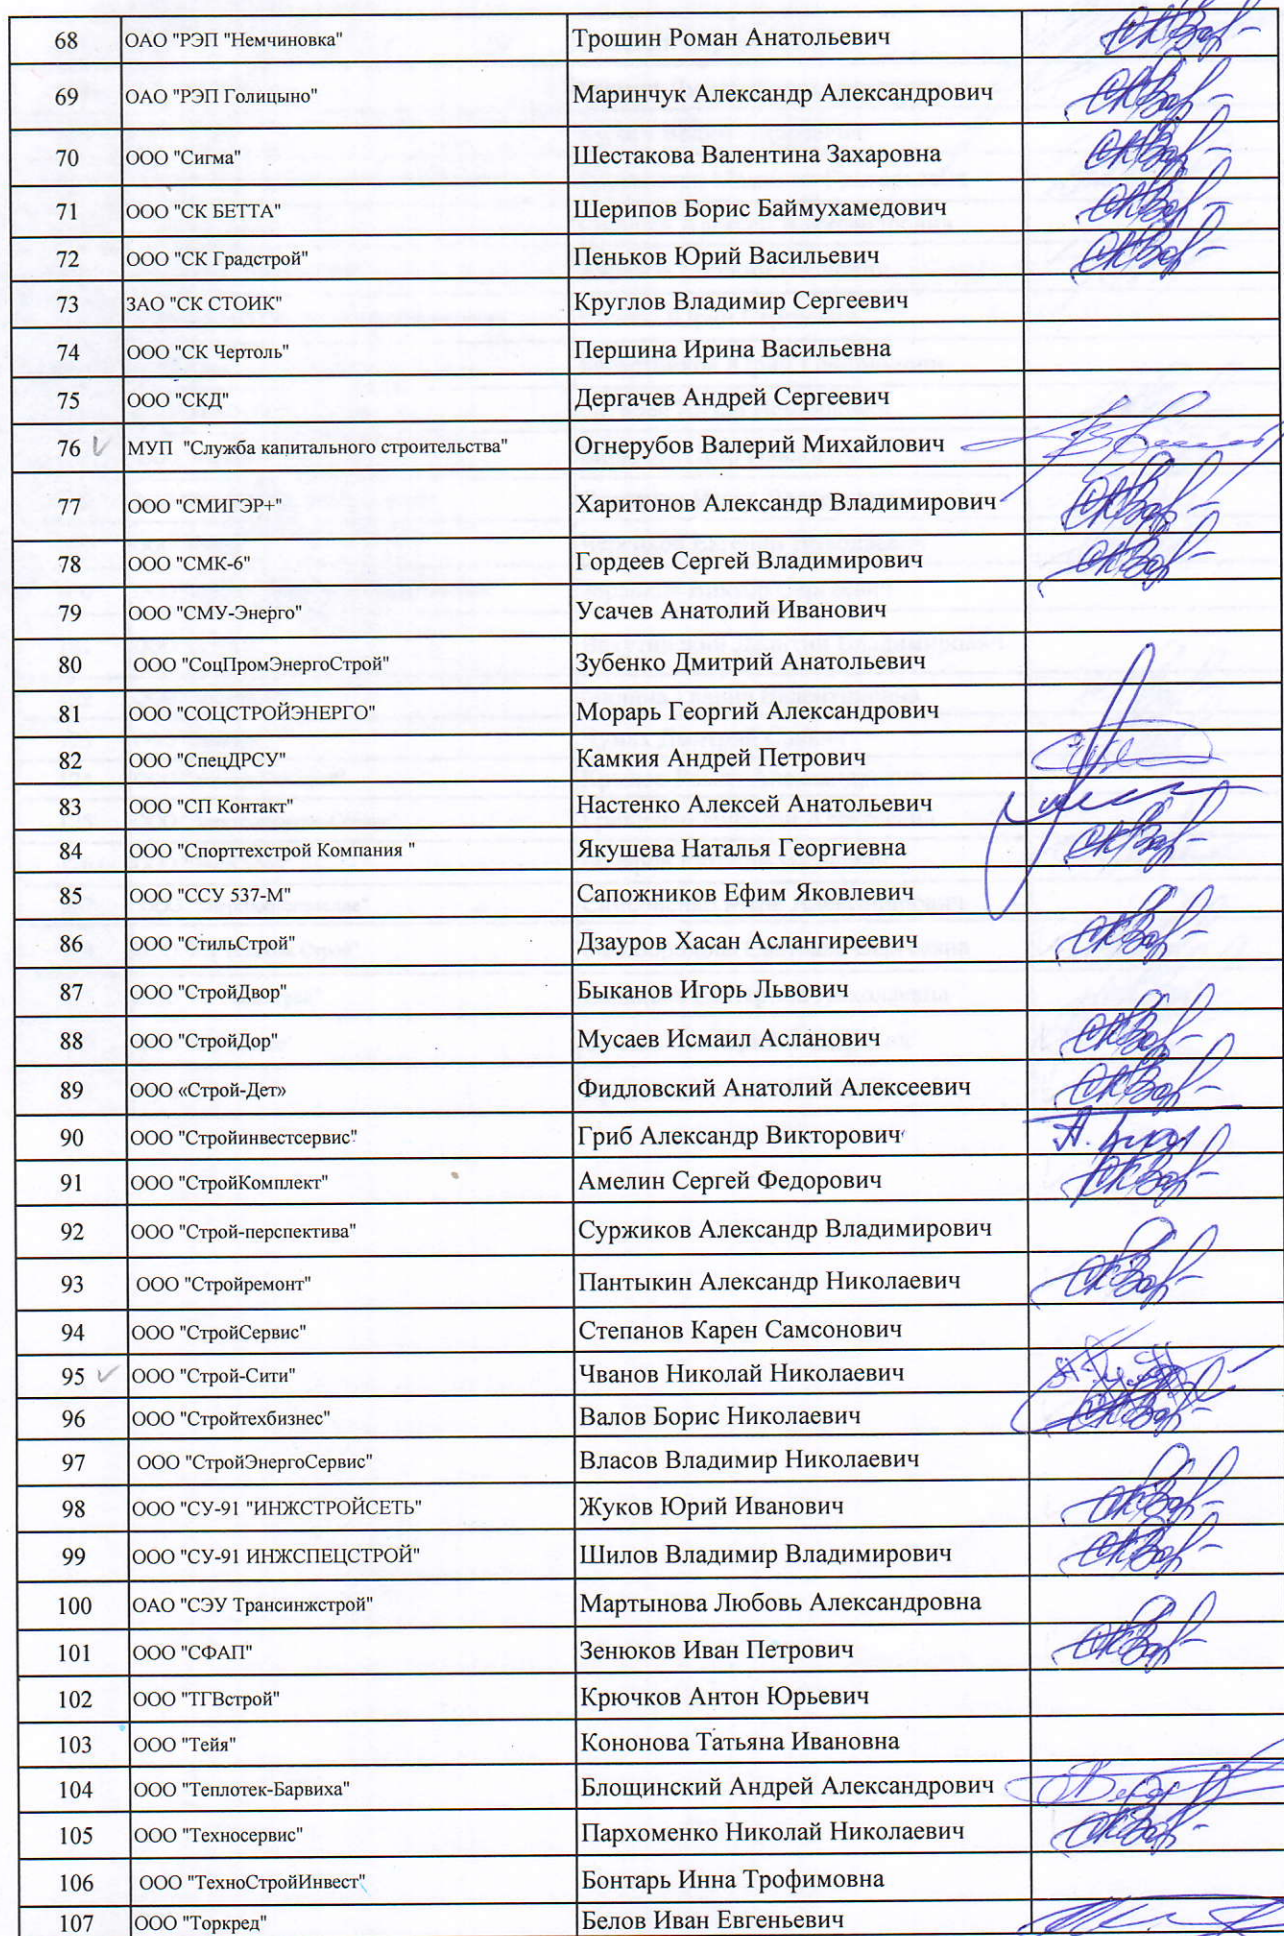 68 ОАО "РЭП "Немчиновка" Трошин Роман Анатольевич
69 ОАО "РЭП Голицыно" Маринчук Александр Александрович
70 ООО "Сигма" Шестакова Валентина Захаровна
71 ООО "СК БЕТТА" Шерипов Борис Баймухамедович
72 ООО "СК Градстрой" Пеньков Юрий Васильевич
73 ЗАО "СК СТОИК" Круглов Владимир Сергеевич
74 ООО "СК Чертоль" Першина Ирина Васильевна
75 ООО "СКД" Дергачев Андрей Сергеевич
76 МУП "Служба капитального строительства" Огнерубов Валерий Михайлович
77 ООО "СМИГЭР+" Харитонов Александр Владимирович
78 ООО "СМК-6" Гордеев Сергей Владимирович
79 ООО "СМУ-Энерго" Усачев Анатолий Иванович
80 ООО "СоцПромЭнергоСтрой" Зубенко Дмитрий Анатольевич
81 ООО "СОЦСТРОЙЭНЕРГО" Морарь Георгий Александрович
82 ООО "СпецДРСУ" Камкия Андрей Петрович
83 ООО "СП Контакт" Настенко Алексей Анатольевич
84 ООО "Спорттехстрой Компания " Якушева Наталья Георгиевна
85 ООО "ССУ 537-М" Сапожников Ефим Яковлевич
86 ООО "СтильСтрой" Дзауров Хасан Аслангиреевич
87 ООО "СтройДвор" Быканов Игорь Львович
88 ООО "СтройДор" Мусаев Исмаил Асланович
89 ООО «Строй-Дет» Фидловский Анатолий Алексеевич
90 ООО "Стройинвестсервис" Гриб Александр Викторович
91 ООО "СтройКомплект" Амелин Сергей Федорович
92 ООО "Строй-перспектива" Суржиков Александр Владимирович
93 ООО "Стройремонт" Пантыкин Александр Николаевич
94 ООО "СтройСервис" Степанов Карен Самсонович
95 ООО "Строй-Сити" Чванов Николай Николаевич
96 ООО "Стройтехбизнес" Валов Борис Николаевич
97 ООО "СтройЭнергоСервис" Власов Владимир Николаевич
98 ООО "СУ-91 "ИНЖСТРОЙСЕТЬ" Жуков Юрий Иванович
99 ООО "СУ-91 ИНЖСПЕЦСТРОЙ" Шилов Владимир Владимирович
100 ОАО "СЭУ Трансинжстрой" Мартынова Любовь Александровна
101 ООО "СФАП" Зенюков Иван Петрович
102 ООО "ТГВстрой" Крючков Антон Юрьевич
103 ООО "Тейя" Кононова Татьяна Ивановна
104 ООО "Теплотек-Барвиха" Блощинский Андрей Александрович
105 ООО "Техносервис" Пархоменко Николай Николаевич
106 ООО "ТехноСтройИнвест" Бонтарь Инна Трофимовна
107 ООО "Торкред" Белов Иван Евгеньевич